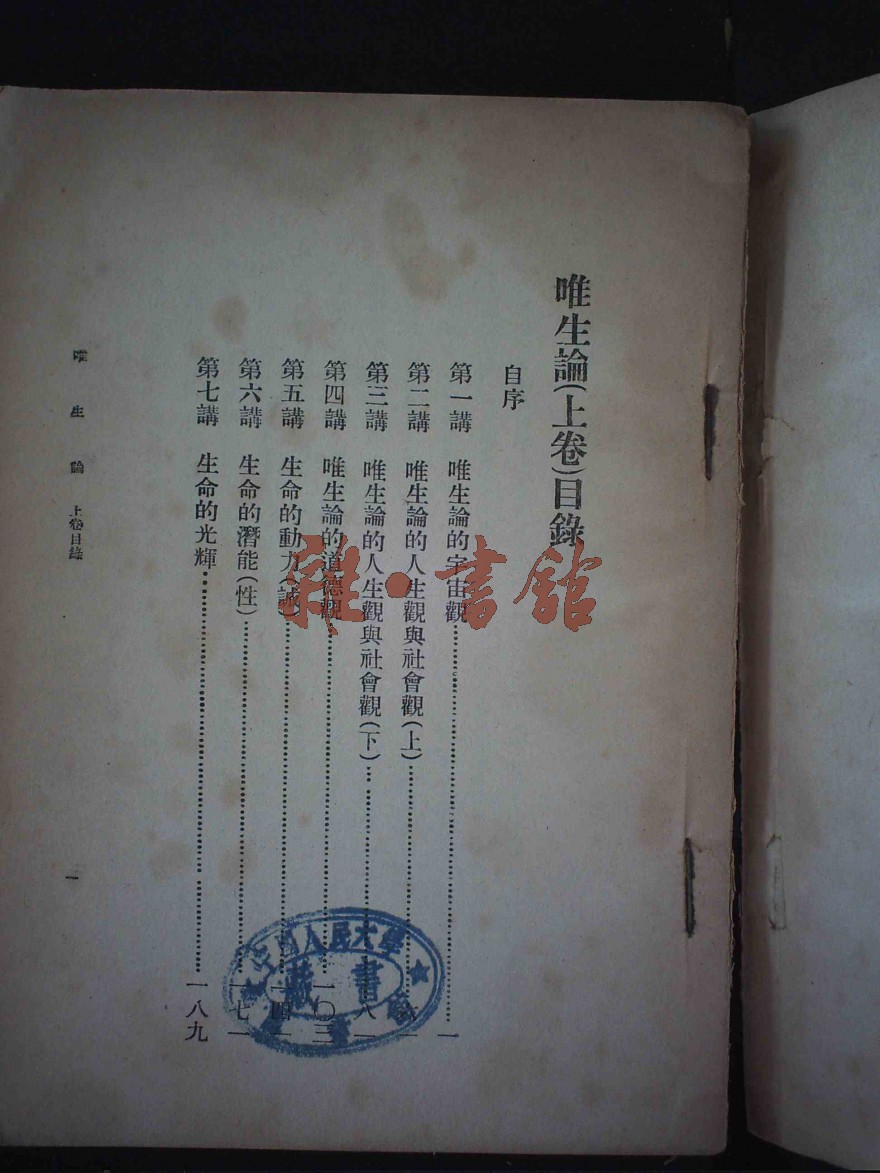 唯生論(上卷)目錄
自序
第一講 唯生論的宇宙觀……一
第二講 唯生論的人生觀與社會觀(上)……
第三講 唯生論的人生觀與社會觀(下)……八一
第四講 唯生論的道德觀……一〇三
第五講 生命的動力(誠)……一四一
第六講 生命的潛能(性)……一七一
第七講 生命的光輝……一八九
唯生論 上卷目錄
一
雅·書館
中國人民大學
藏書